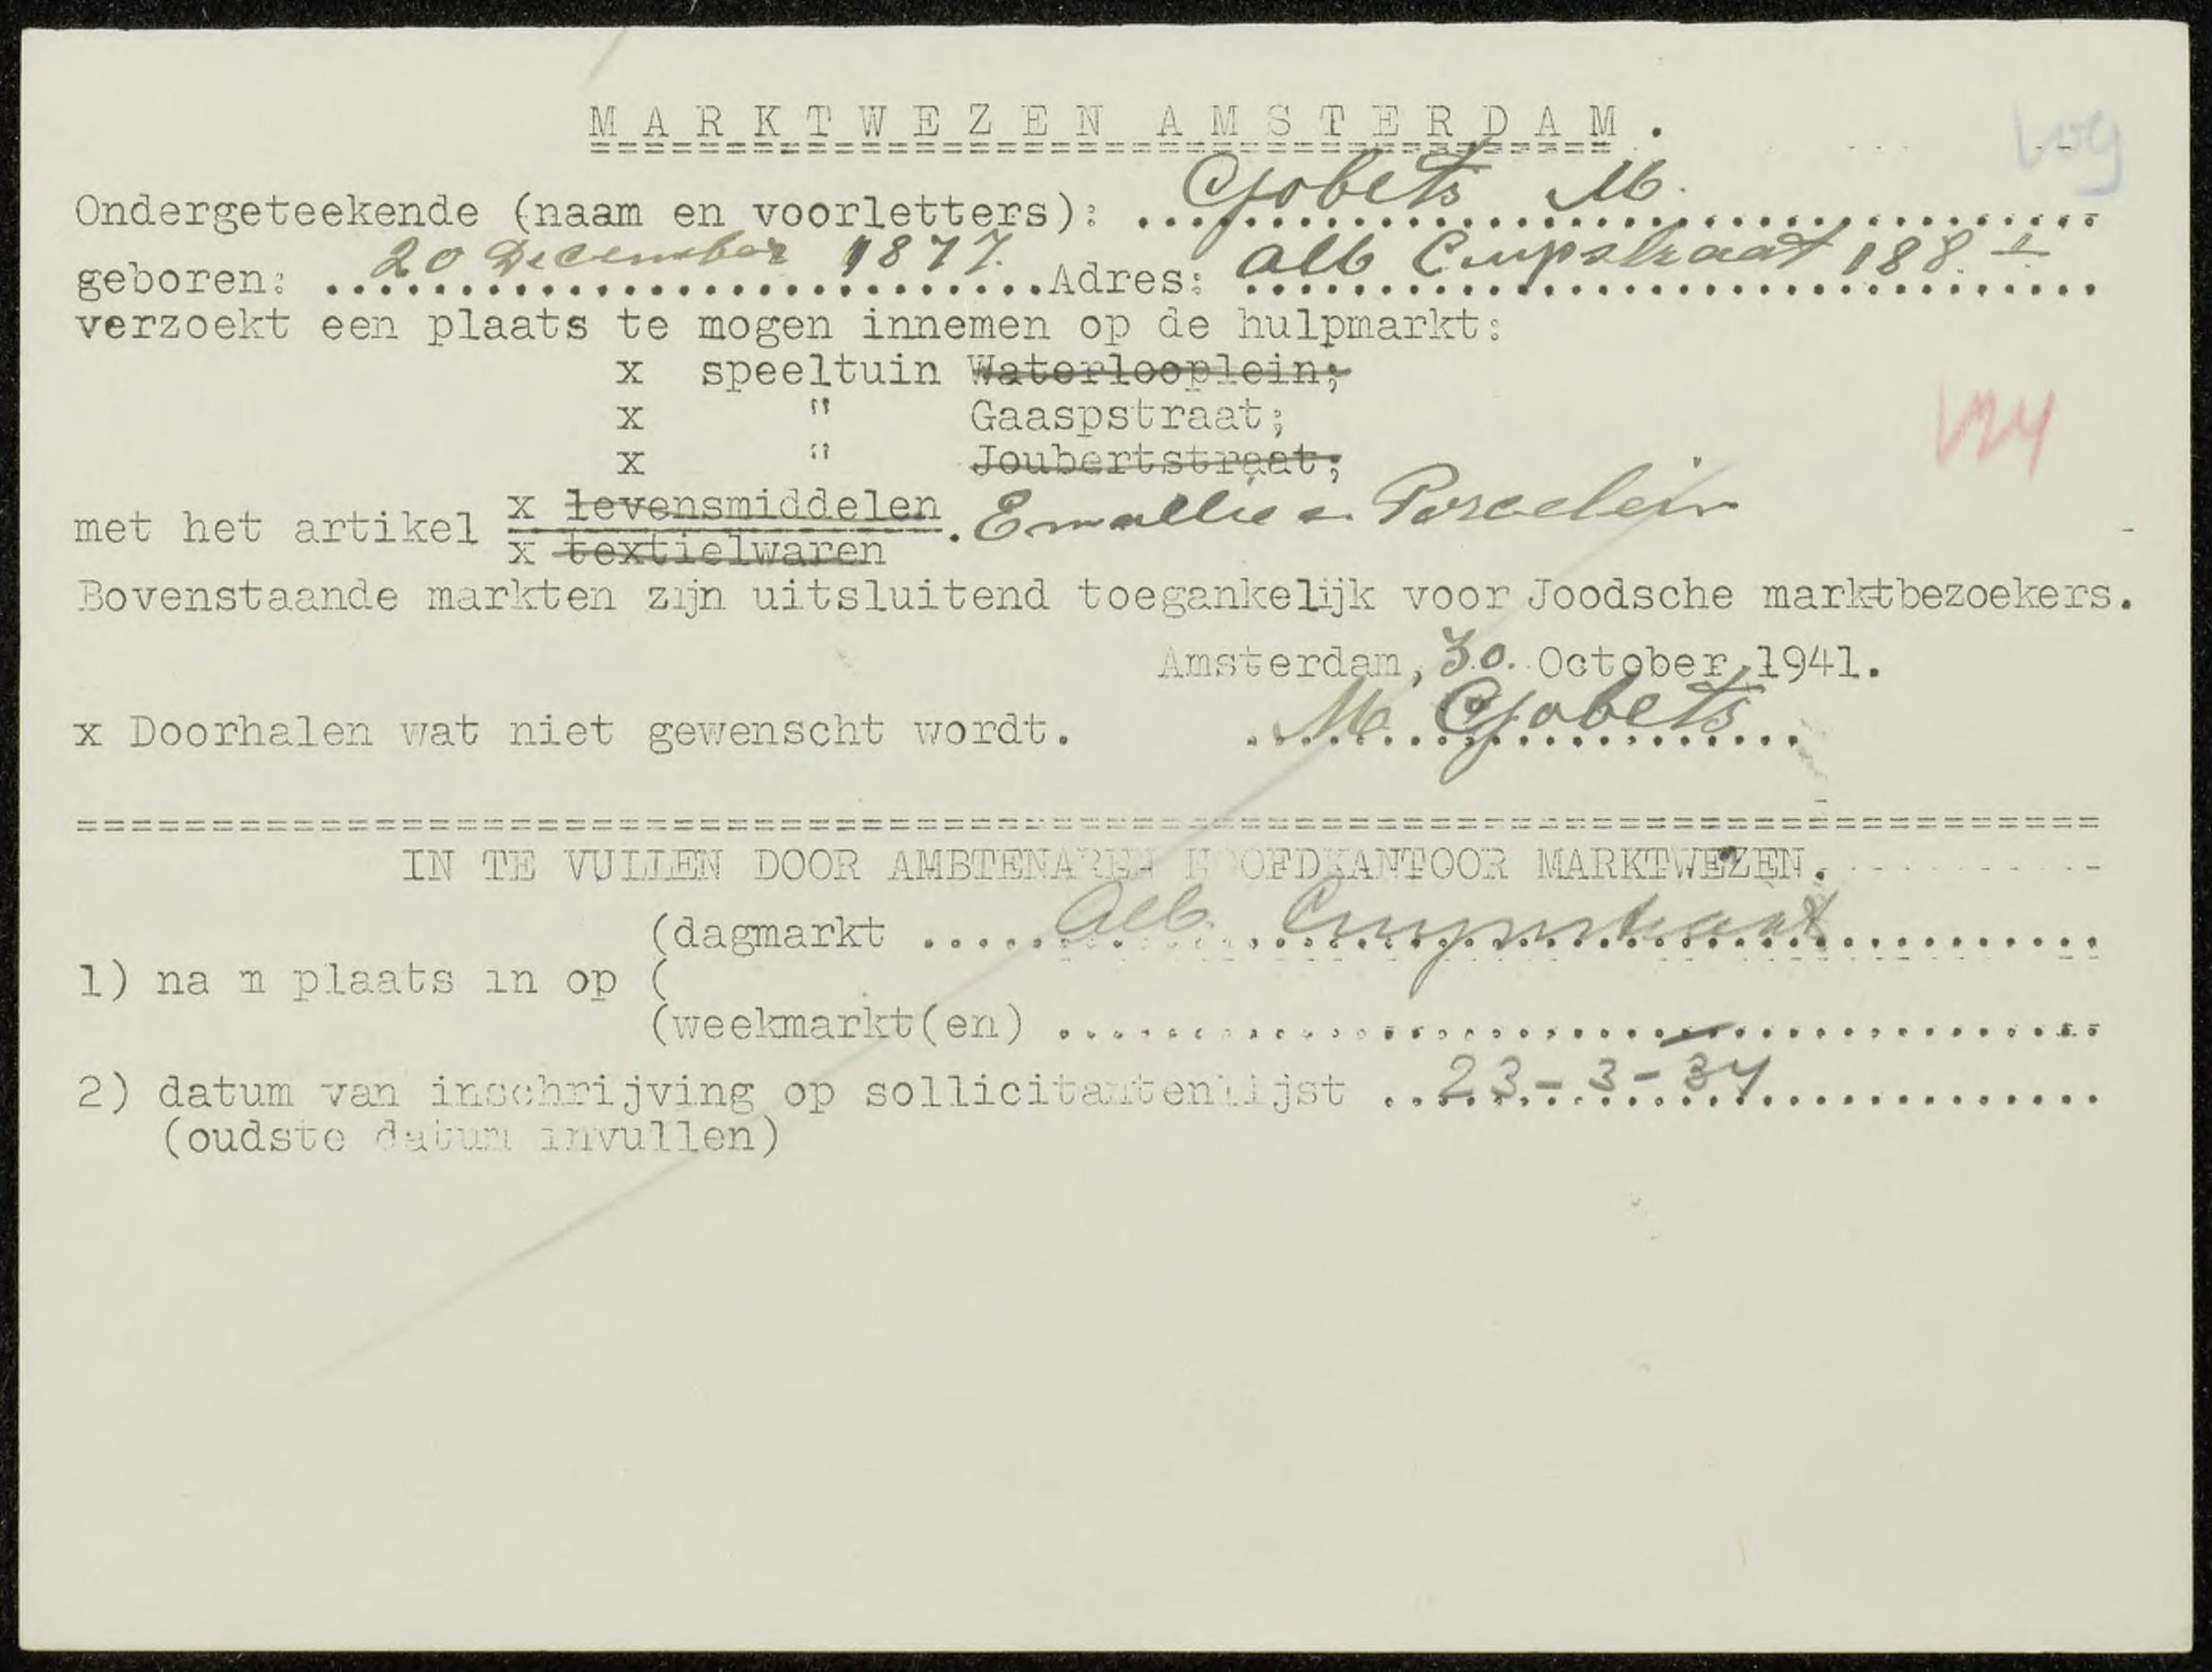 MARKTWEZEN AMSTERDAM.
Ondergeteekende (naam en voorletters): Gobets M.
geboren: 20 December 1877. Adres: Alb Cuypstraat 188 I
verzoekt een plaats te mogen innemen op de hulpmarkt:
x speeltuin Waterlooplein;
x " Gaaspstraat;
x " Joubertstraat;
met het artikel x levensmiddelen
x textielwaren . Emallie en Porcelein
Bovenstaande markten zijn uitsluitend toegankelijk voor Joodsche marktbezoekers.
Amsterdam, 30. October 1941.
x Doorhalen wat niet gewenscht wordt. M. Gobets
IN TE VULLEN DOOR AMBTENAREN HOOFDKANTOOR MARKTWEZEN.
(dagmarkt Alb. Cuypstraat
1) na m plaats in op (
(weekmarkt(en) —
2) datum van inschrijving op sollicitantenlijst 23-3-34
(oudste datum invullen)